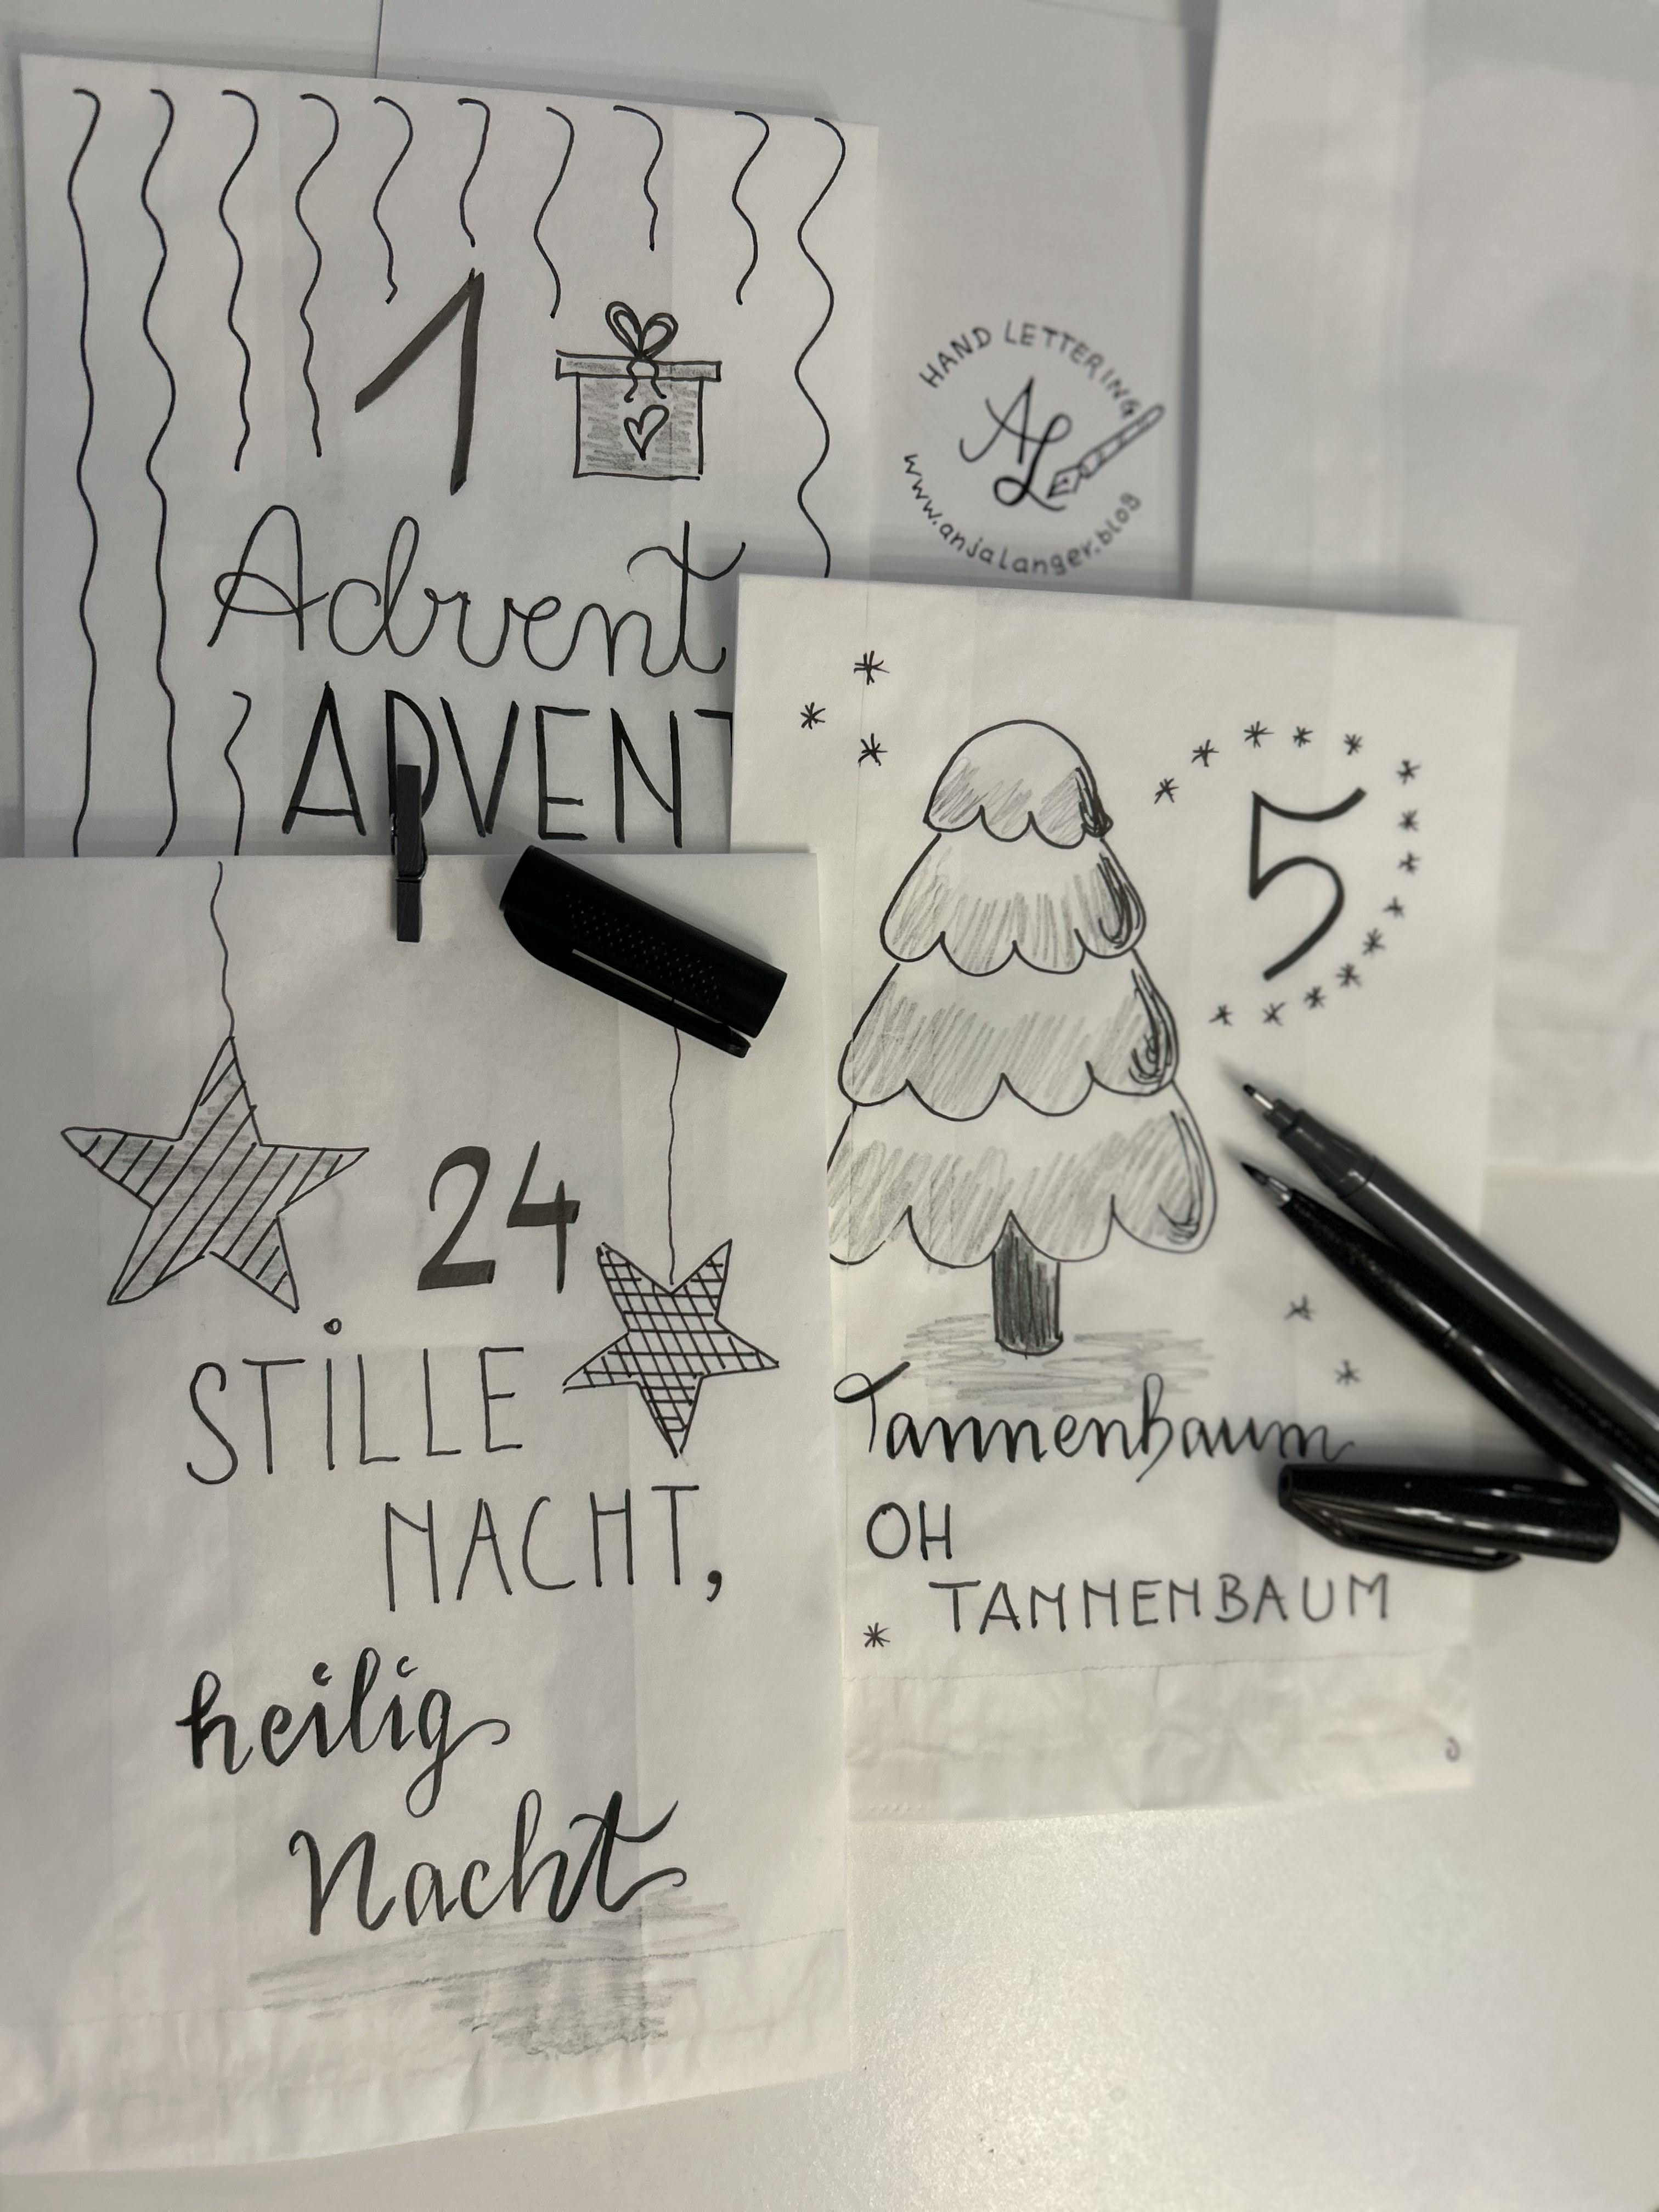 1
Advent
ADVENT
HAND LETTERING
AL
www.anjalanger.blog
5
Tannenbaum
OH
TANNENBAUM
24
STiLLE
NACHT,
heilig
Nacht